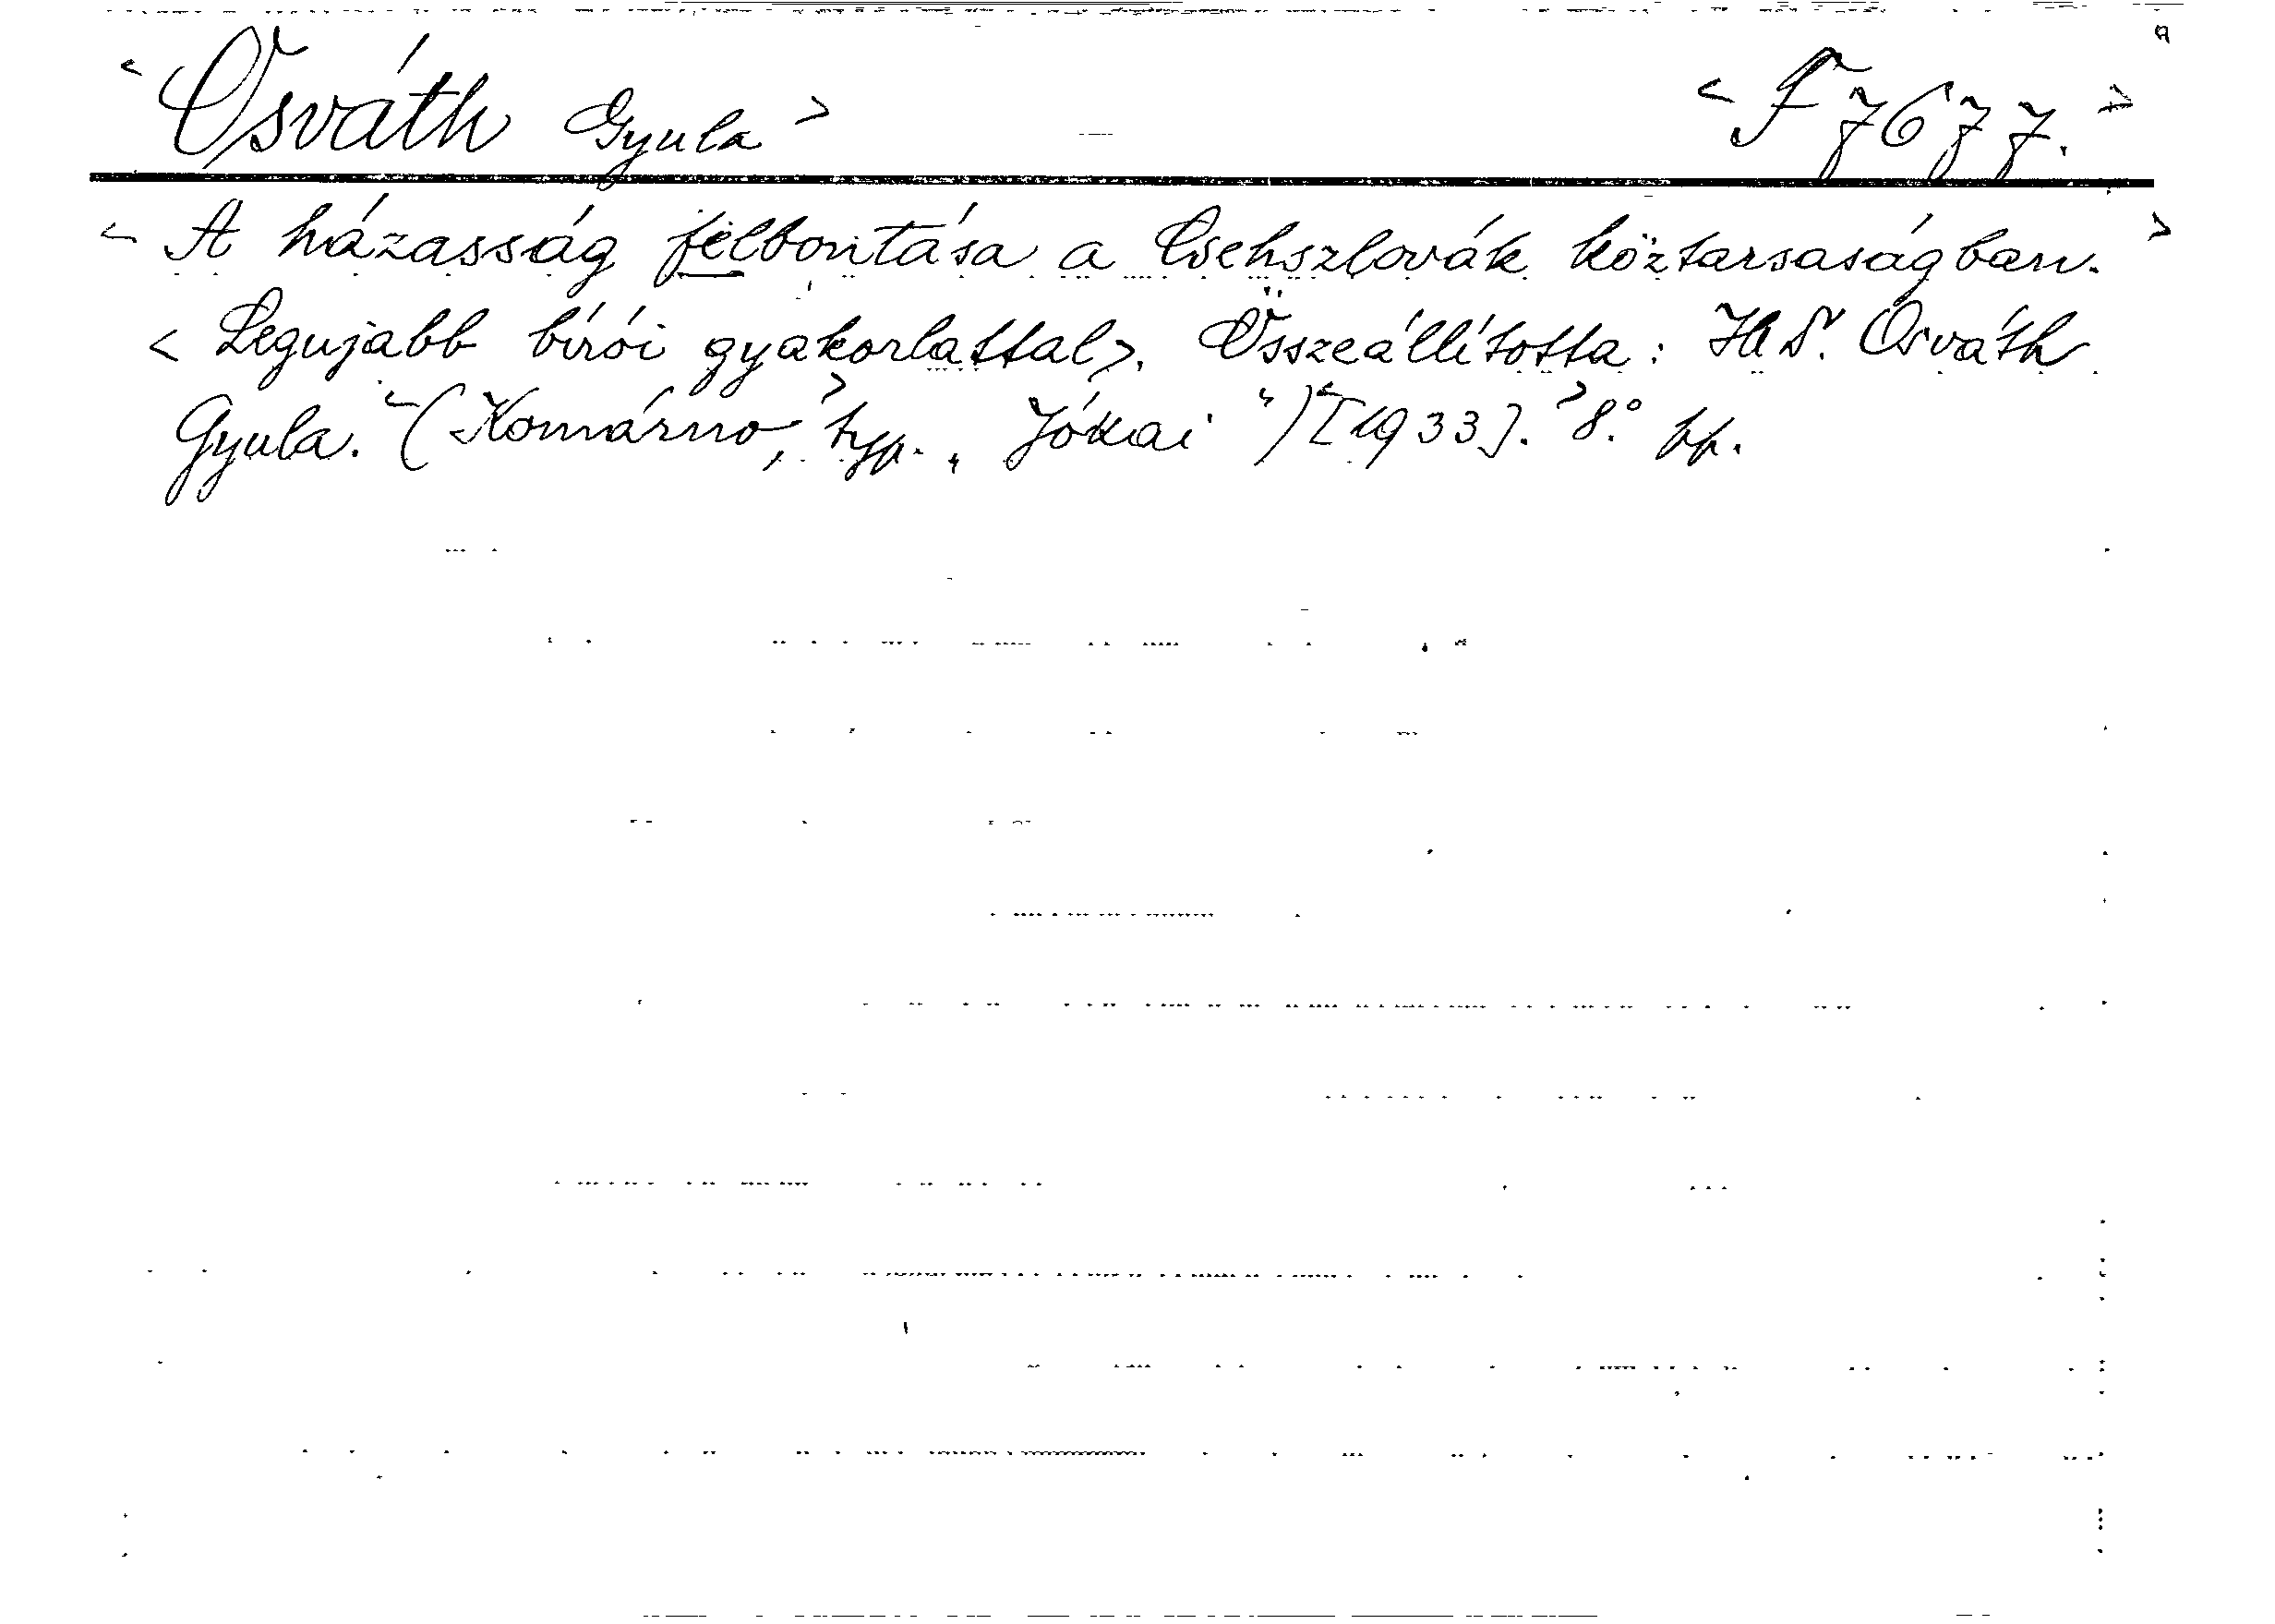 < Osváth Gyula > < F 7677. >
< A házasság felbontása a Csehszlovák köztarsaságban. >
< Legujabb bírói gyakorlattal >. Összeállította: Osváth
Gyula. < (Komárno, > typ. „Jókai") < [1933]. > 8.°